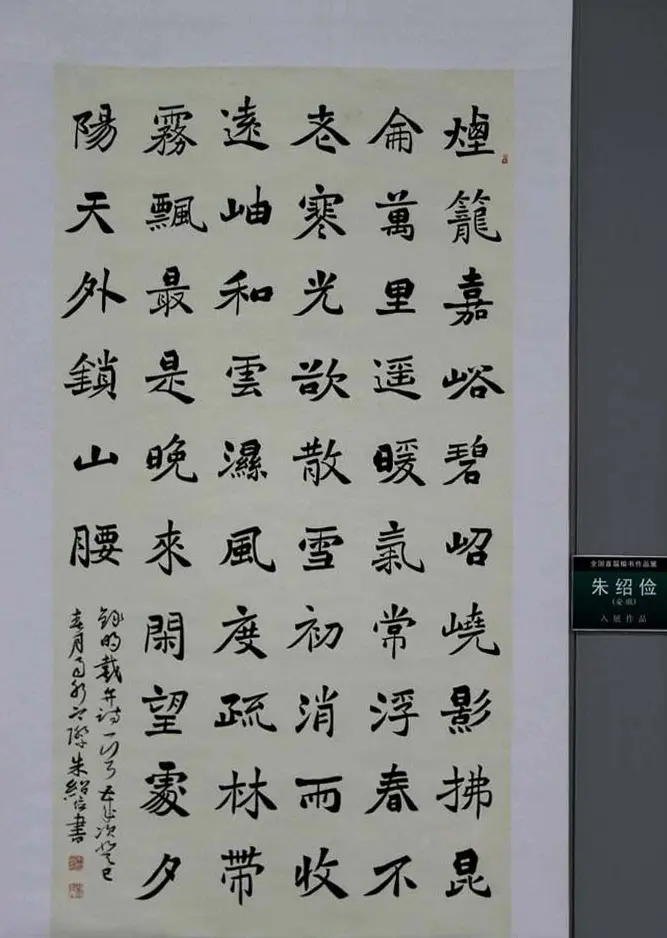 煙籠嘉峪碧岧嶢影拂昆
侖萬里遥暖氣常浮春不
老寒光欲散雪初消雨收
遠岫和雲濕風度疏林帶
霧飄最是晚來閑望處夕
陽天外鎖山腰
錄明戴弁詩一首 歲次癸巳
春月 朱紹俭書
全国首届楷书作品展
朱绍俭
(安徽)
入展作品